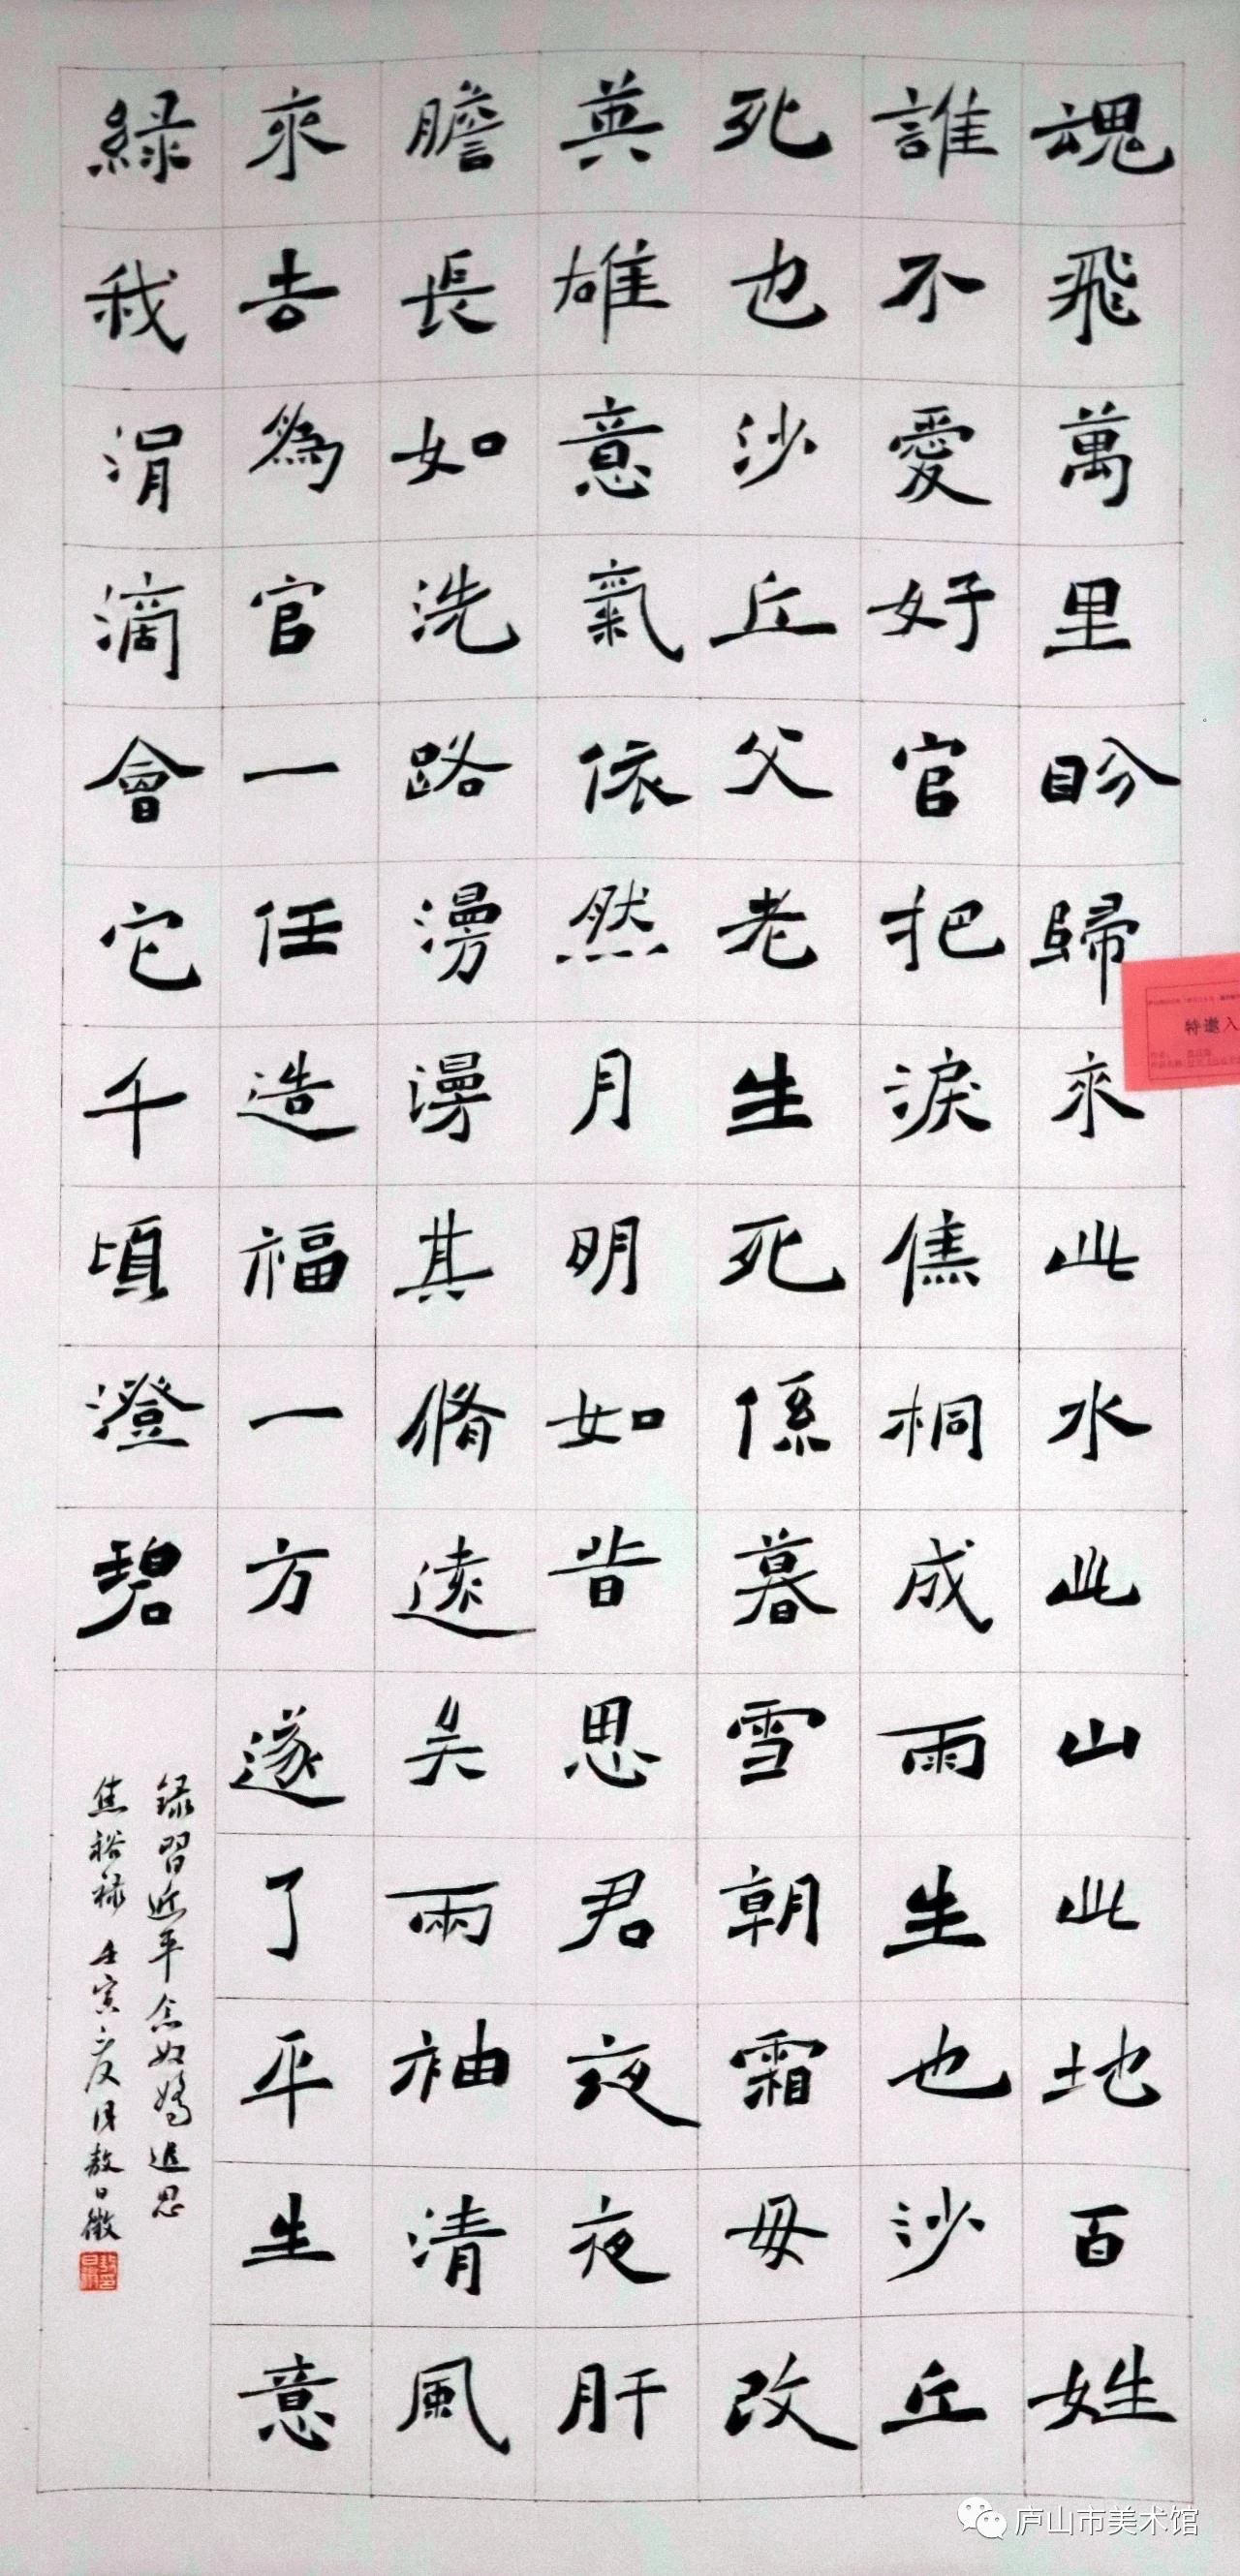 魂飛萬里盼歸來此水此山此地百姓
誰不愛好官把淚焦桐成雨生也沙丘
死也沙丘父老生死係暮雪朝霜毋改
英雄意氣依然月明如昔思君夜夜肝
膽長如洗路漫漫其脩遠矣兩袖清風
來去為官一任造福一方遂了平生意
綠我涓滴會它千頃澄碧
录習近平念奴嬌追思
焦裕祿 壬寅夏月敖日徽
特邀入
庐山市美术馆